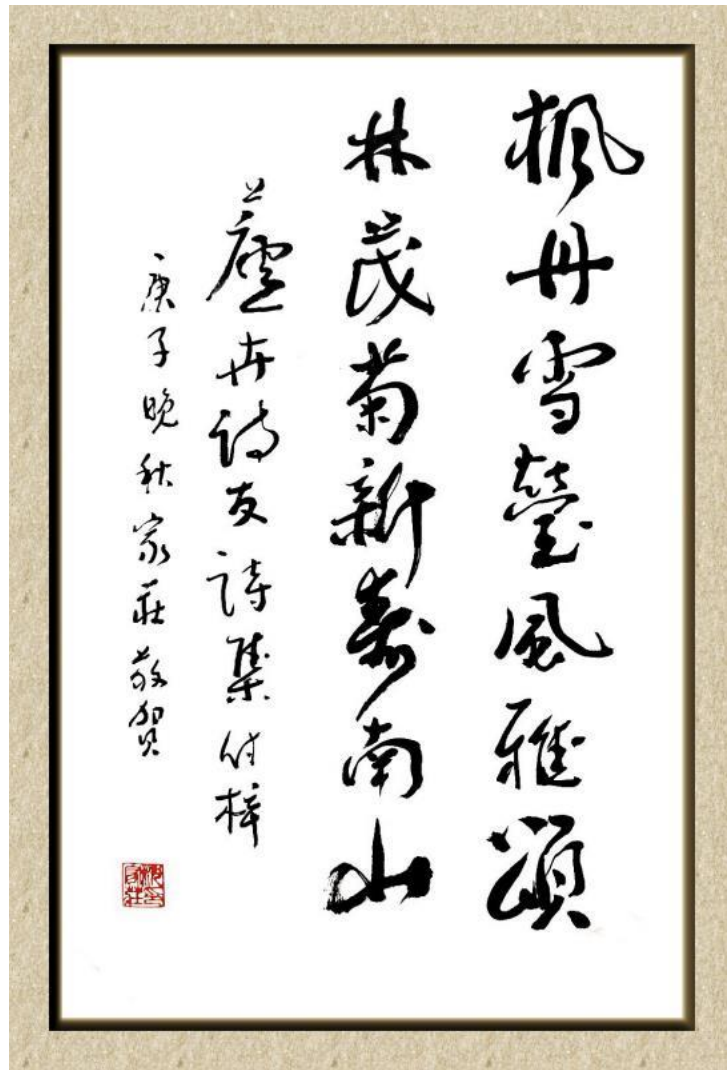 枫丹雪莹風雅頌
林茂菊新壽南山
蘆卉詩友詩集付梓
庚子晚秋家莊敬贺